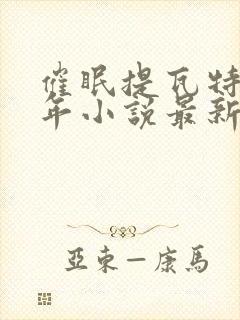 催眠提瓦特
年小説最新
亞東—康馬